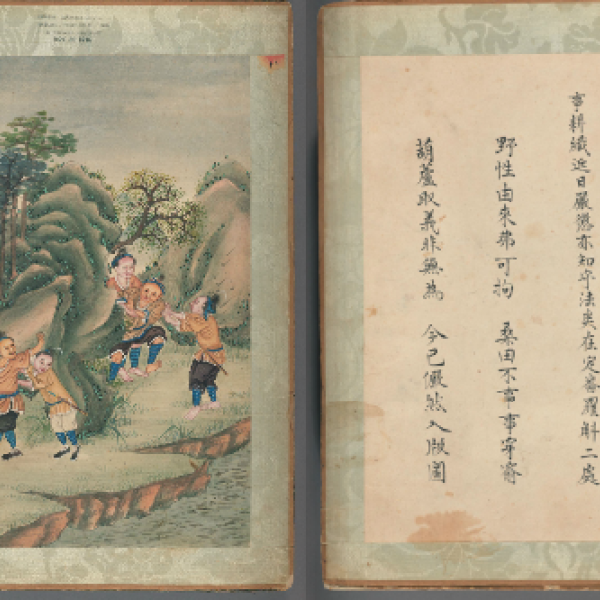 事耕織近日嚴懲亦知守法矣在定番羅斛二處
野性由來弗可拘　桑田不事事穿窬
葫蘆取義非無為　今已儼然入版圖